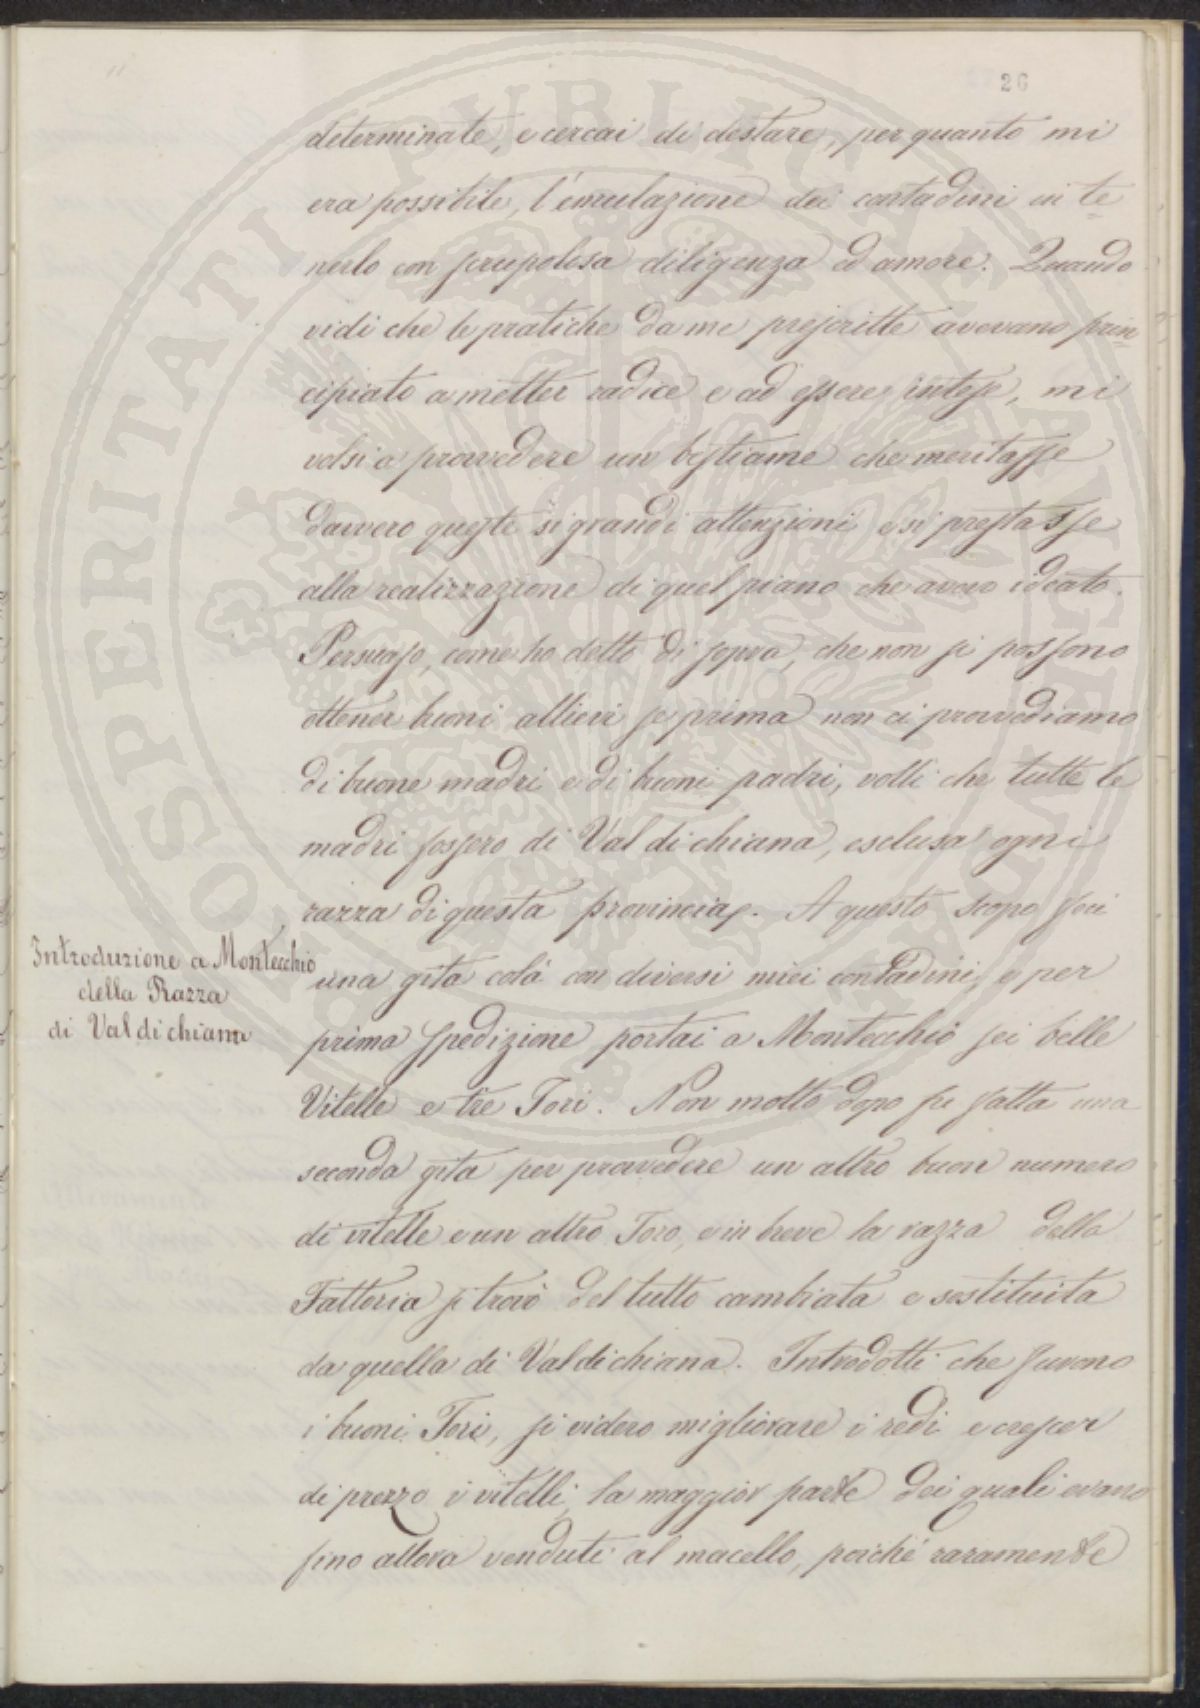 26
determinate, e cercai di destare, per quanto mi
era possibile, l'emulazione dei contadini in te
nerlo con scrupolosa diligenza ed amore. Quando
vidi che le pratiche da me prescritte avevano prin
cipiato a metter radice e ad essere intese, mi
volsi a provvedere un bestiame che meritasse
davvero queste sì grandi attenzioni e si prestasse
alla realizzazione di quel piano che avevo ideato.
Persuaso, come ho detto di sopra, che non si possono
ottener buoni allievi se prima non ci provvediamo
di buone madri e di buoni padri, volli che tutte le
madri fossero di Val di chiana, esclusa ogni
razza di questa provincia. A questo scopo feci
Introduzione a Montecchio
della Razza
di Val di chiana
una gita colà con diversi miei contadini, e per
prima spedizione portai a Montecchio sei belle
Vitelle e tre Tori. Non molto dopo fu fatta una
seconda gita per provvedere un altro buon numero
di vitelle e un altro Toro, e in breve la razza della
Fattoria si trovò del tutto cambiata e sostituita
da quella di Val di chiana. Introdotti che furono
i buoni Tori, si videro migliorare i redi e crescer
di prezzo i vitelli, la maggior parte dei quali erano
fino allora venduti al macello, poiché raramente
PROSPERITATI PUBLICAE AUGENDAE